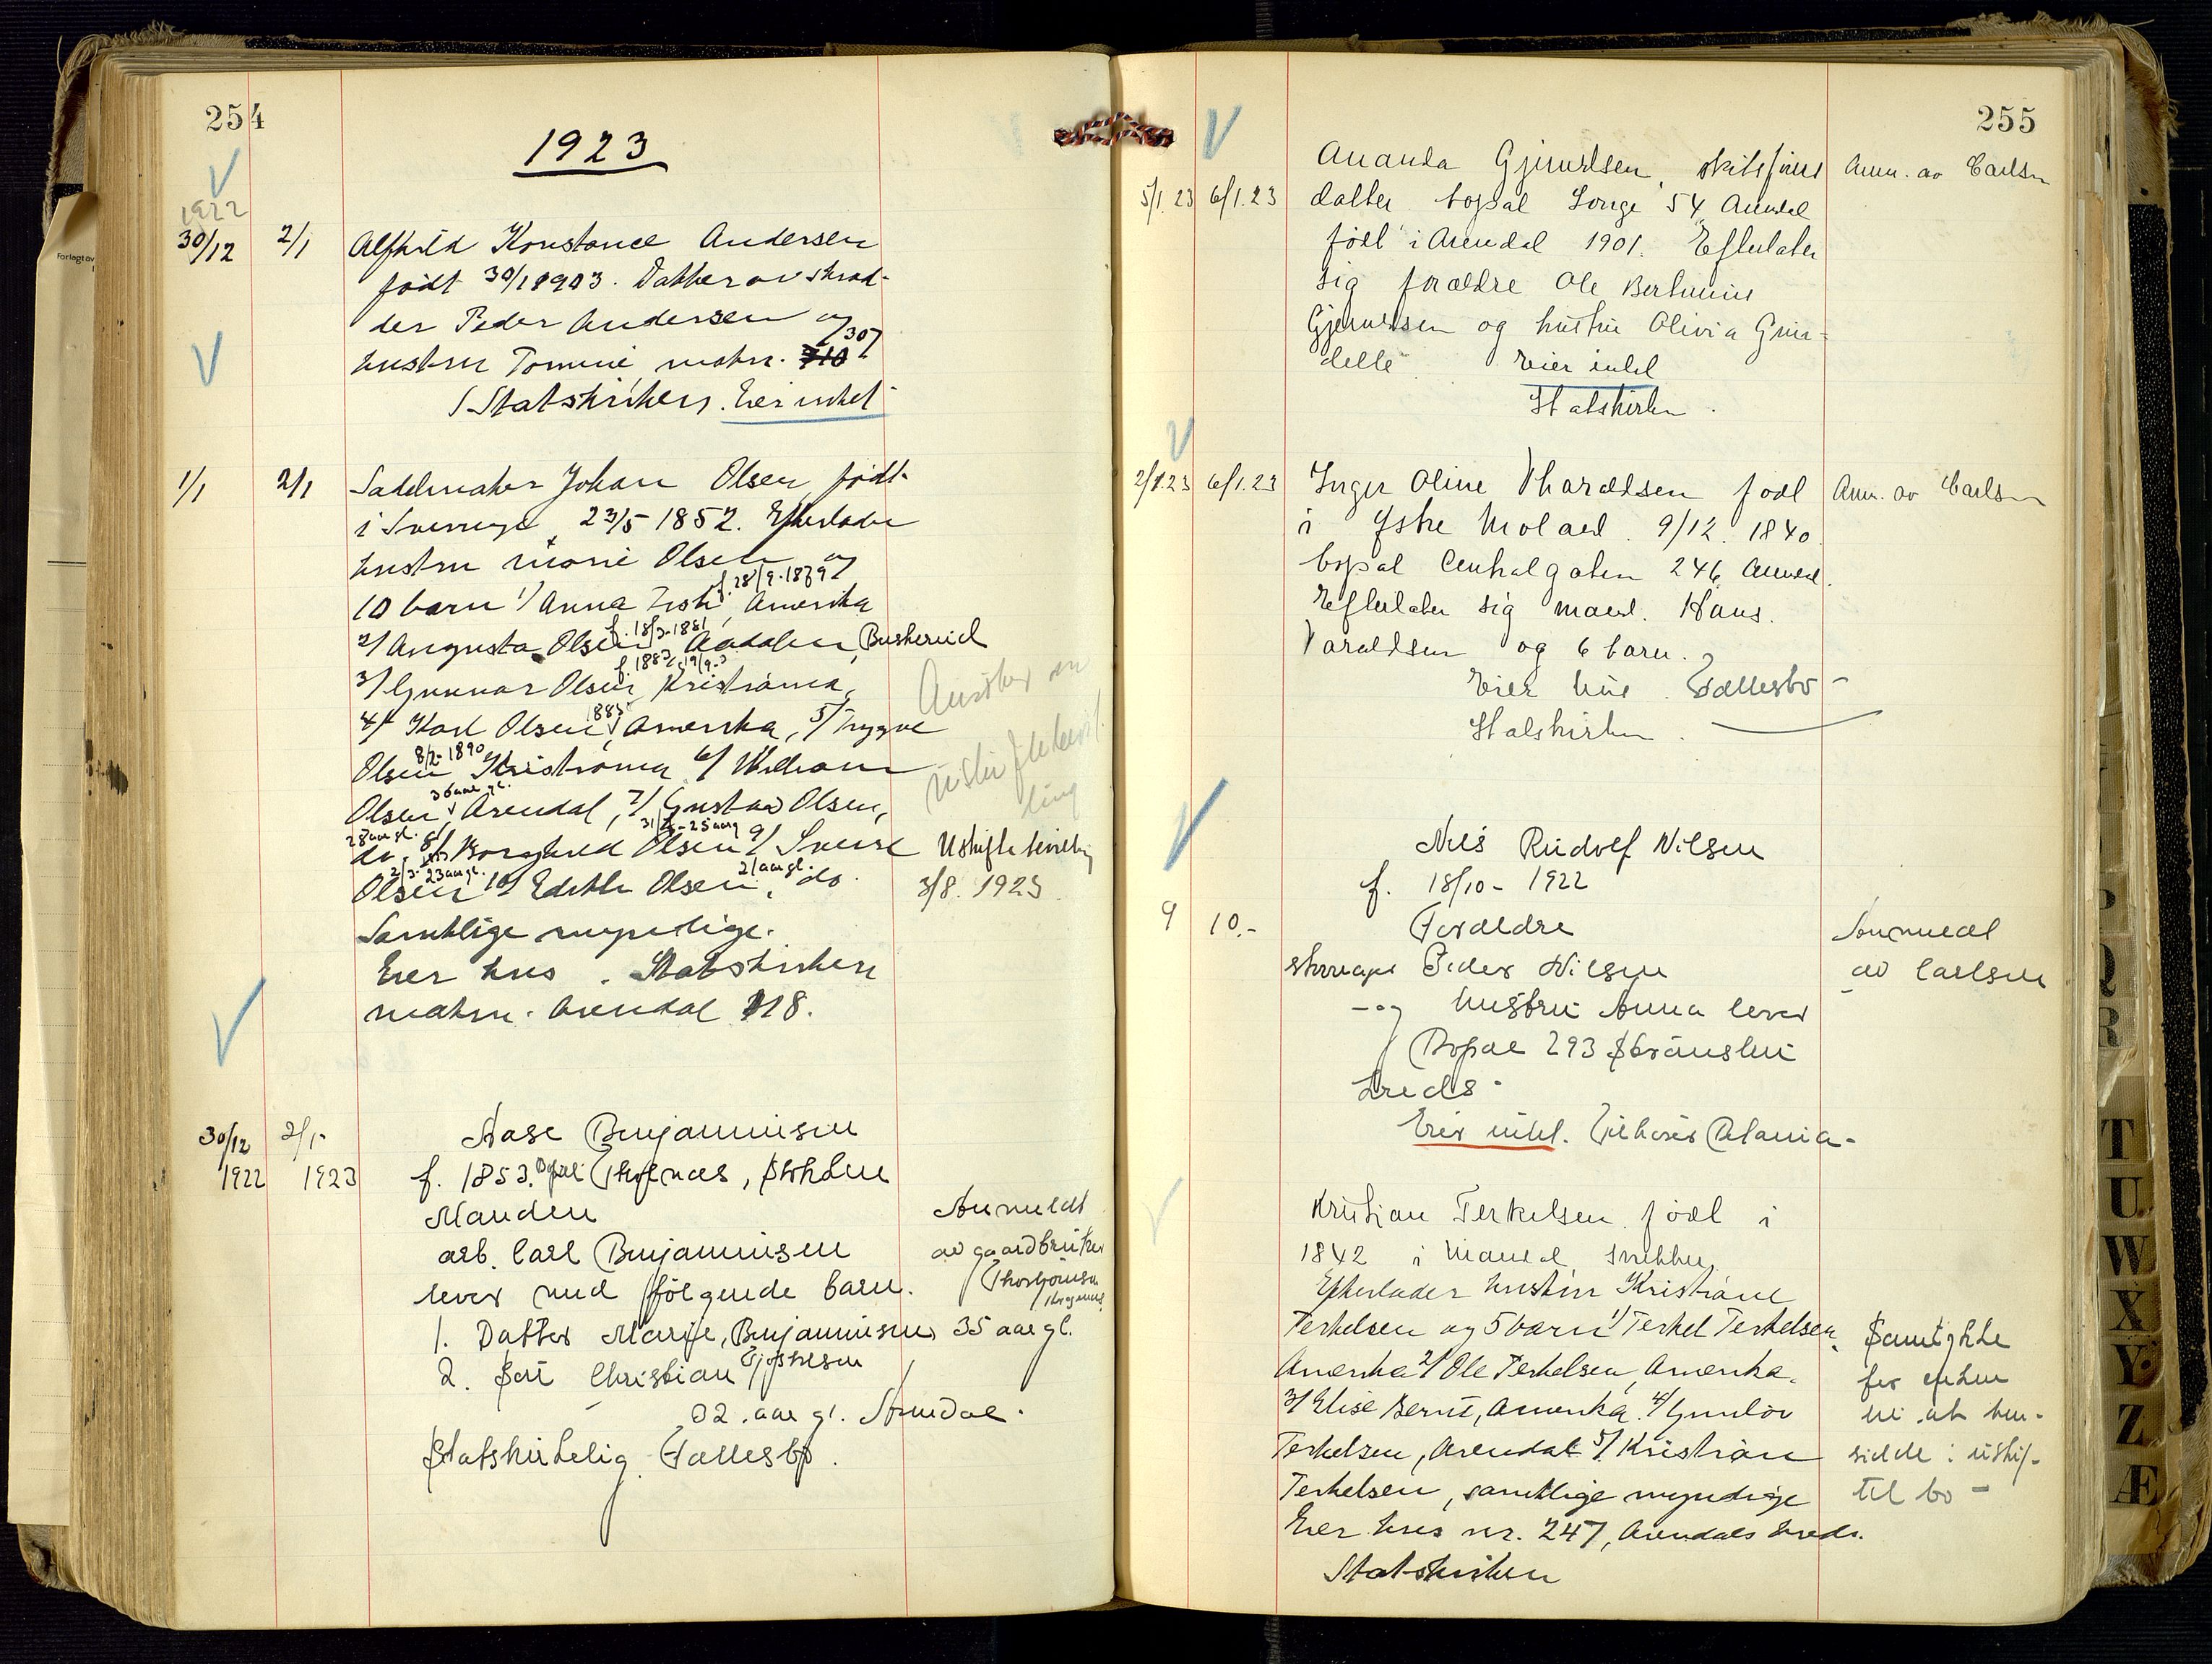 254
1923
1922
30/12 2/1 Alfhild Konstance Andersen
født 30/1 1903. Datter av skræd-
der Peder Andersen og
hustru Tomine, matr. 307
Statskirken. Eier intet
1/1 2/1 Sadelmaker Johan Olsen, født
i Sverige, 23/5 1852. Efterlader
hustru Marie Olsen og
f. 28/9-1879
10 barn 1/ Anna, Amerika
f. 18/3-1881
2/ Augusta Olsen Aadalen, Buskerud
f 1882 19/9
3/ Gunnar Olsen, Kristiania,
1885
4/ Karl Olsen, Amerika, 5/ Trygve
8/2-1890
Olsen, Kristiania 6/ William
36 aar gl.
Olsen, Arendal, 7/ Gustav Olsen,
28 aar gl. 25 aar
do. 8/ Borghild Olsen 9/ Sverre
23 aar gl. 21 aar gl.
Olsen 10/ Edith Olsen, do.
Uskiftebevilling
3/8. 1923
Samtlige myndige.
Eier hus. Statskirken
matr. Arendal 118.
30/12 2/1- Aase Benjaminsen
1922 1923 f. 1853. Bopæl, Stokken
Manden
arb. Carl Benjaminsen
lever med følgende barn.
1. Datter Marie, Benjaminsen 35 aar gl.
2. Søn Christian
aar gl. Arendal.
Statskirkelig. Fællesbo.
Anmeldt
av gaardbruker
255
5/1.23 6/1.23 Amanda Gjeruldsen, skibsfører
datter bopæl Songe 54 Arendal
født i Arendal 1901. Efterlater
sig forældre Ole Bertinius
Gjeruldsen og hustru Olivia
Eier intet
Statskirken.
Anm. av Carlsen
2/1.23 6/1.23 Inger Oline Tharaldsen født
i Østre Moland. 9/12. 1840.
bopæl Centralgaten 246 Arendal.
Efterlater sig mand. Hans
Taraldsen og 6 barn.
Eier hus. Fællesbo-
Statskirken.
Anm. av Carlsen
Nils Rudolf Nilsen
f. 18/10-1922
9 10.- Forældre
Peder Nilsen
-og hustru Anna lever
Bopæl 293
Kreds-
Eier intet. Tilhører Betania-
Anmeldt
av Carlsen
Kristian Terkelsen født i
1842 i Mandal, snekker.
Efterlader hustru Kristiane
Terkelsen og 5 barn 1/ Terkel Terkelsen,
Amerika 2/ Ole Terkelsen, Amerika.
3/ Elise Bernt, Amerika. 4/ Gunlov
Terkelsen, Arendal 5/ Kristian
Terkelsen, samtlige myndige
Eier hus nr. 247, Arendals kreds.
Statskirken
Samtykke
for enken
til at hen-
sidde i uskif-
tet bo-
T
U
W
X
Y
Z
Æ